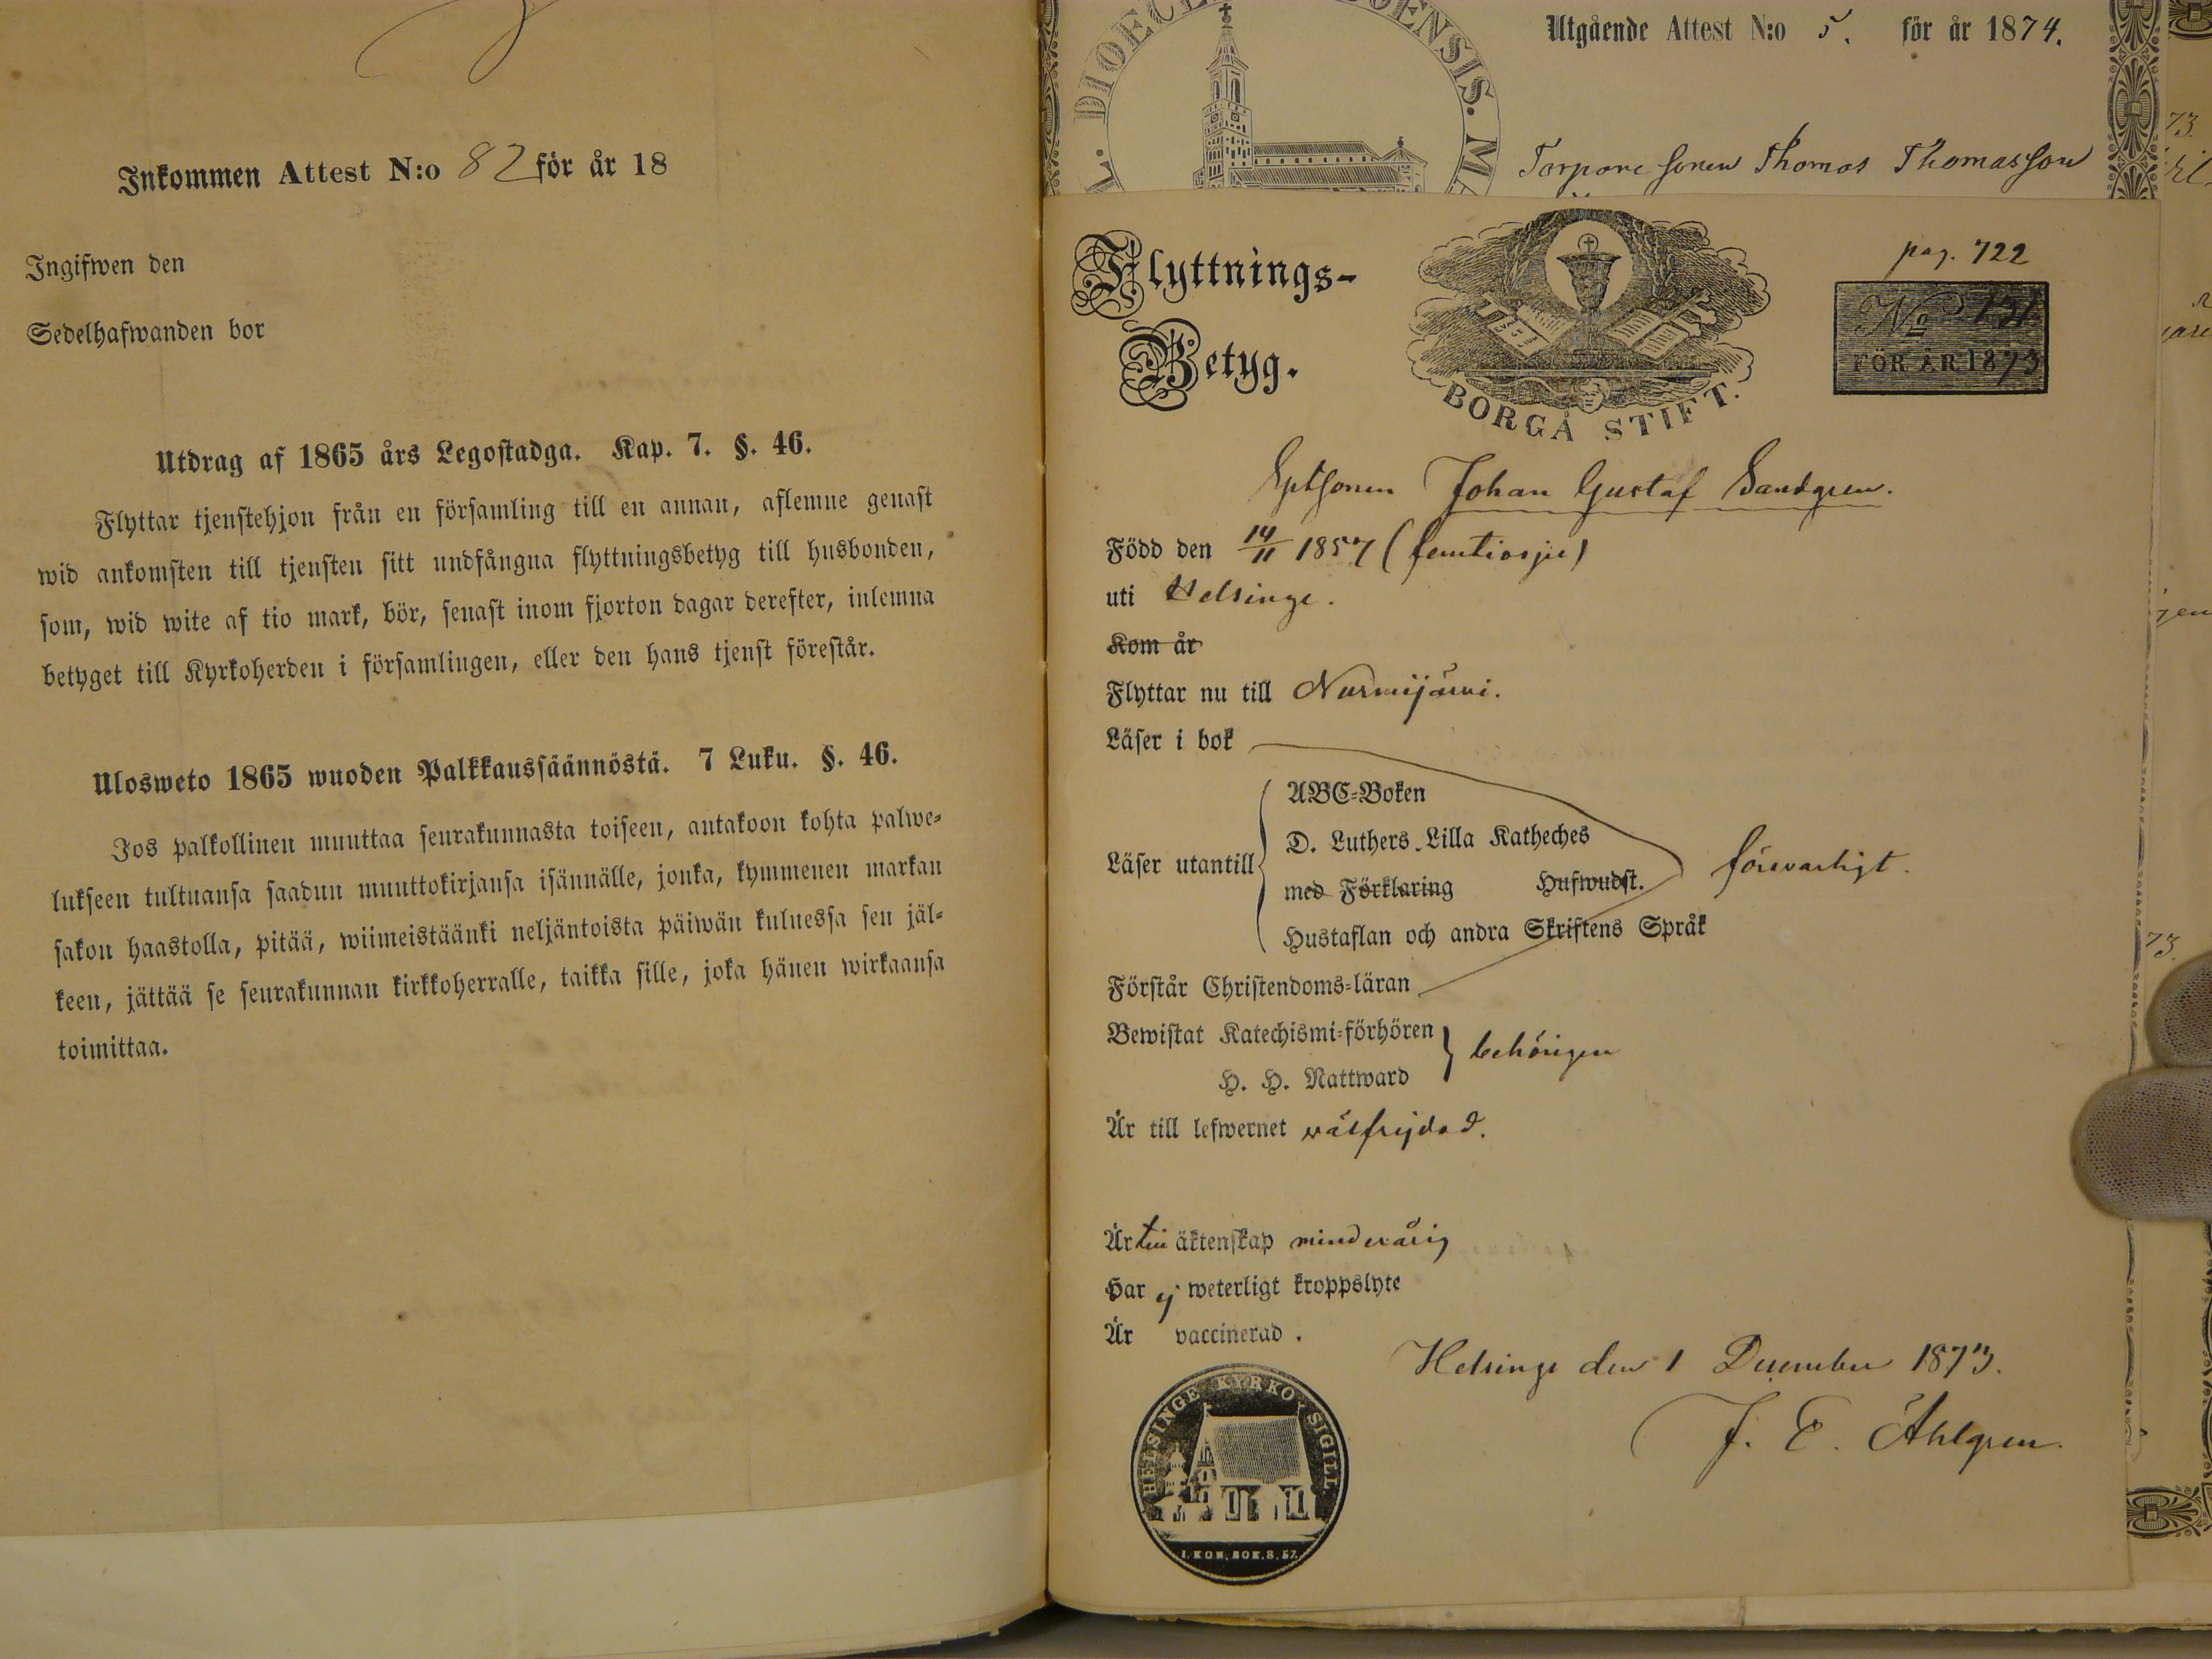 Inkommen Attest N:o 82 för år 18
Ingifwen den
Sedelhafwanden bor
Utdrag af 1865 års Legostadga. Kap. 7. §. 46.
Flyttar tjenstehjon från en församling till en annan, aflemne genast
wid ankomsten till tjensten sitt undfångna flyttningsbetyg till husbonden,
som, wid wite af tio mark, bör, senast inom fjorton dagar derefter, inlemna
betyget till Kyrkoherden i församlingen, eller den hans tjenst förestår.
Ulosweto 1865 wuoden Palkkaussäännöstä. 7 Luku. §. 46.
Jos palkollinen muuttaa seurakunnasta toiseen, antakoon kohta palwe-
lukseen tultuansa saadun muuttokirjansa isännälle, jonka, kymmenen markan
sakon haastolla, pitää, wiimeistäänki neljäntoista päiwän kuluessa sen jäl-
keen, jättää se seurakunnan kirkkoherralle, taikka sille, joka hänen wirkaansa
toimittaa.
Utgående Attest N:o 5. för år 1874.
Torpare sonen Thomas Thomasson
Flyttnings-
Betyg.
BORGÅ STIFT.
pag. 722
No 131
FÖR ÅR 1873
Johan Gustaf Sandgren.
Född den 14/11 1857 (femtiosju)
uti Helsinge.
Kom år
Flyttar nu till Nurmijärvi.
Läser i bok
Läser utantill
ABC-Boken
D. Luthers Lilla Katheches
med Förklaring Hufwudst.
Hustaflan och andra Skriftens Språk
försvarligt.
Förstår Christendoms-läran
Bewistat Katechismi-förhören
H. H. Nattward
behörigen
Är till lefwernet välfrejdad.
Är till äktenskap minderårig
Har ej weterligt kroppslyte
Är vaccinerad.
Helsinge den 1 December 1873.
J. E. Åhlgren.
HELSINGE KYRKO SIGILL
1. KON. BOK. 8. 57.